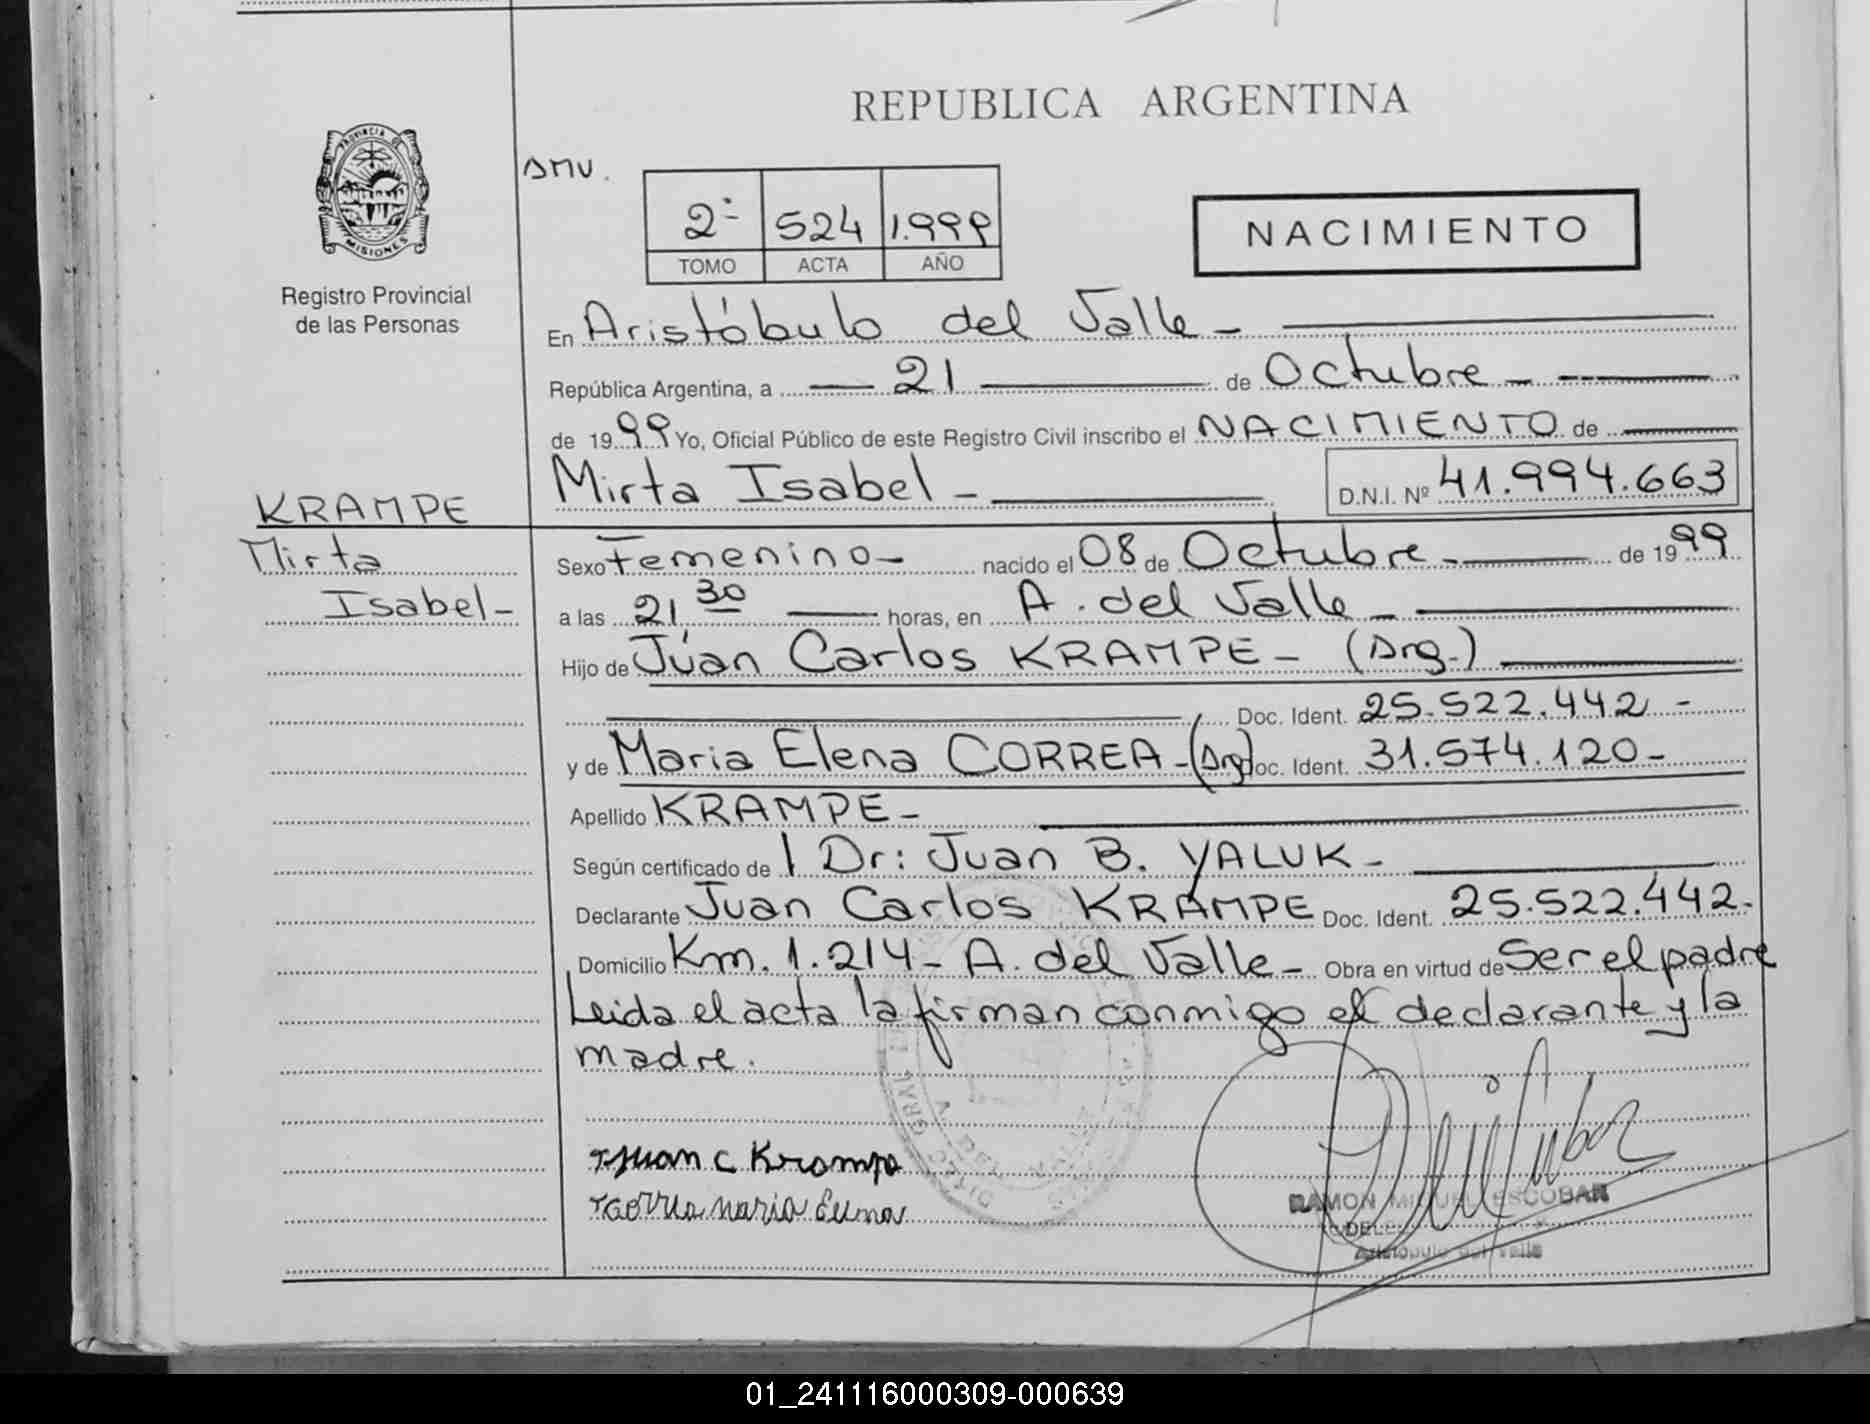 REPUBLICA ARGENTINA
PROVINCIA DE
MISIONES
Registro Provincial
de las Personas
2º 524 1.999
TOMO ACTA AÑO
NACIMIENTO
En Aristóbulo del Valle -
República Argentina, a 21 de Octubre -
de 1999 Yo, Oficial Público de este Registro Civil inscribo el NACIMIENTO de
Mirta Isabel - D.N.I. Nº 41.994.663
KRAMPE
Mirta
Isabel -
Sexo Femenino - nacido el 08 de Octubre - de 1999
a las 21 30 horas, en A. del Valle -
Hijo de Júan Carlos KRAMPE - (Arg.)
Doc. Ident. 25.522.442 -
y de Maria Elena CORREA - (Arg) Doc. Ident. 31.574.120 -
Apellido KRAMPE -
Según certificado de l Dr: Juan B. YALUK -
Declarante Juan Carlos KRAMPE Doc. Ident. 25.522.442.
Domicilio Km. 1.214 - A. del Valle - Obra en virtud de Ser el padre
Leida el acta la firman conmigo el declarante y la
madre.
Juan C Krampe
Correa Maria Elena
RAMON MIGUEL ESCOBAR
Aristóbulo del Valle
01_241116000309-000639